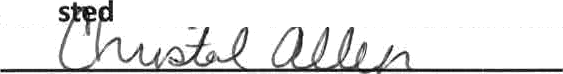 sted
Christal Allen